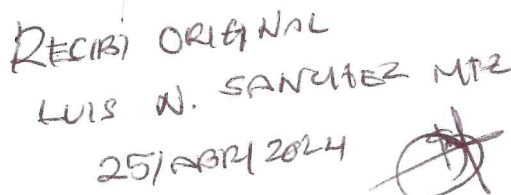 RECIBÍ ORIGINAL
LUIS N. SANCHEZ MTZ
25/ABR/2024